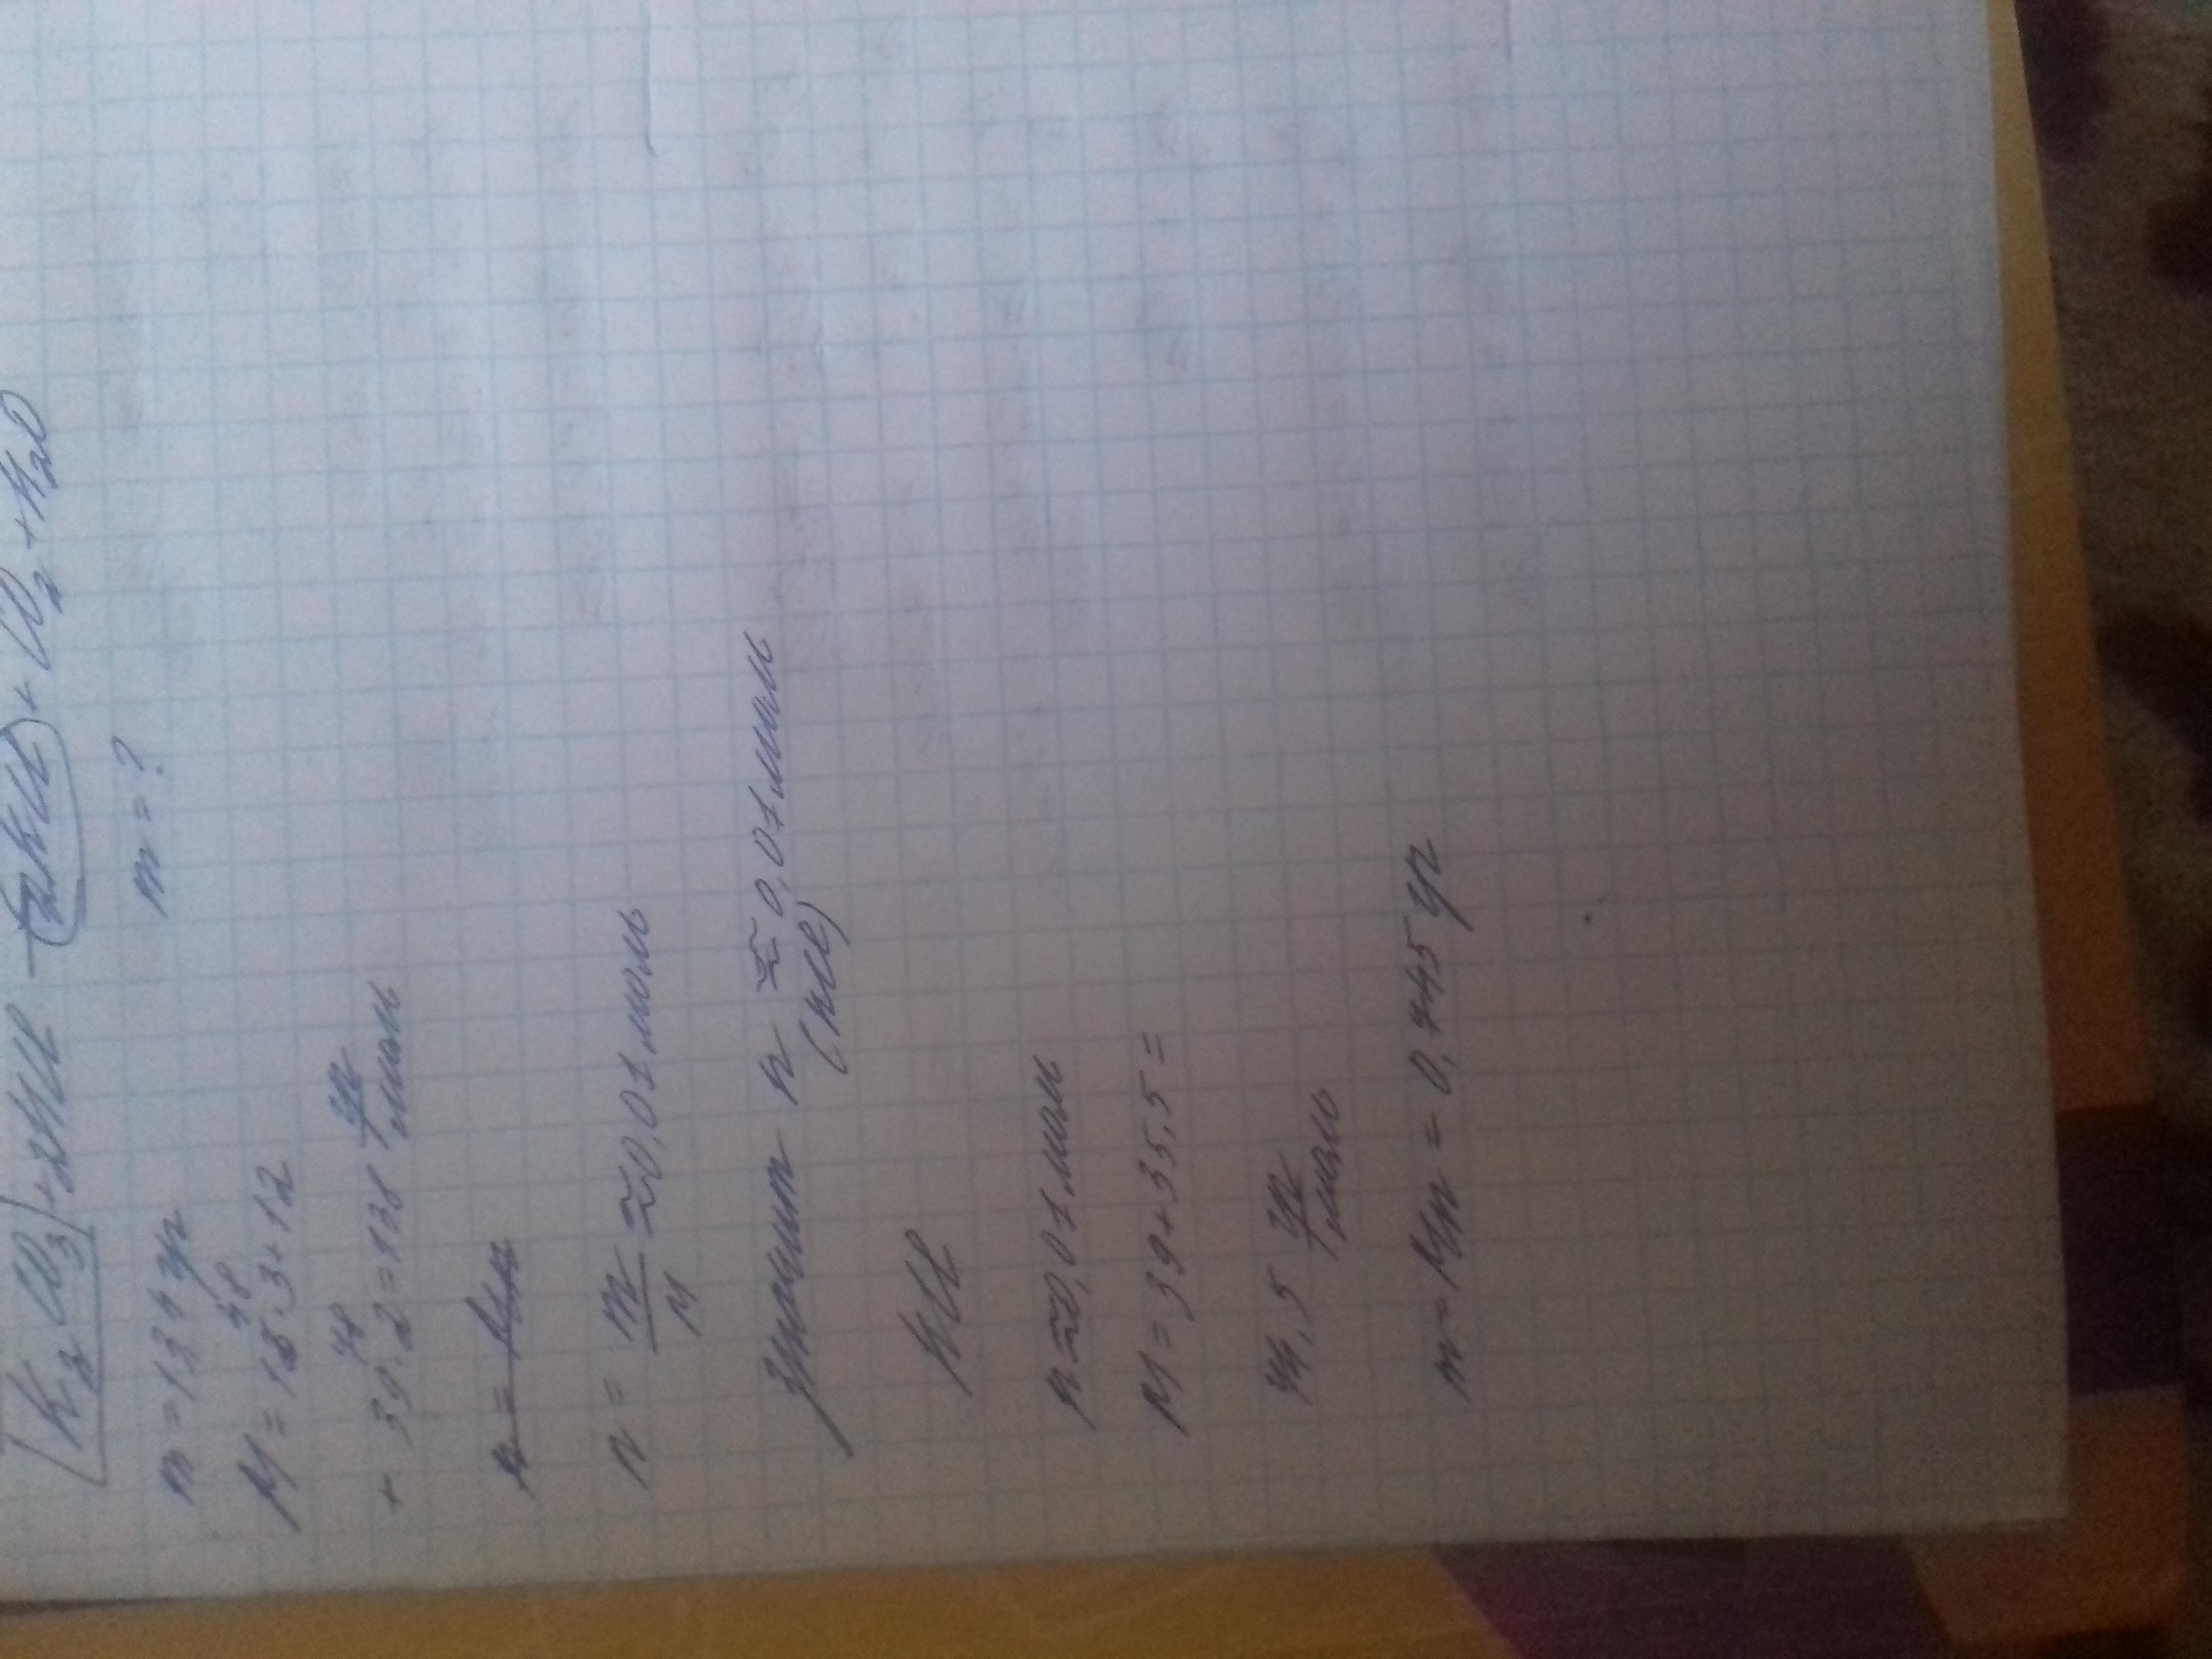 K₂CO₃ + 2HCl → 2KCl + CO₂ + H₂O
m = 137 гр m = ?
M = 16·3 + 12
48
+ 39·2 = 138 гр/моль
78
n = m/M ≈ 0,01 моль
Значит n (KCl) ≈ 0,01 моль
KCl
n ≈ 0,01 моль
M = 39 + 35,5 =
74,5 гр/моль
m = Mn = 0,745 гр